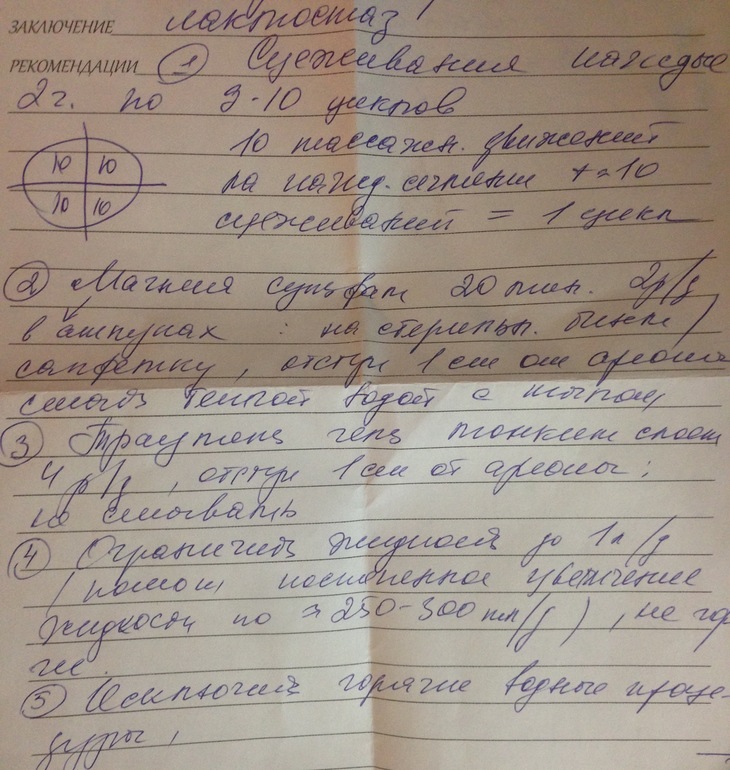 ЗАКЛЮЧЕНИЕ лактостаз
РЕКОМЕНДАЦИИ 1 Сцеживания каждые
2 г. по 9-10 циклов
10 10 10 массажн. движений
на кажд. сегменте + ≈ 10
10 10 сцеживаний = 1 цикл
2 Магния сульфат 20 мин. 2р/д
в ампулах : на стерильн. бинт /
салфетку, отступ 1 см от ареолы
смыть теплой водой с мылом
3 Траумель гель тонким слоем
4 р/д, отступ 1 см от ареолы;
не смывать
4 Ограничить жидкость до 1л/д
( потом постепенное увеличение
жидкости по ≈ 250-300 мл/д ), не горя-
чие.
5 Исключить горячие водные проце-
дуры,